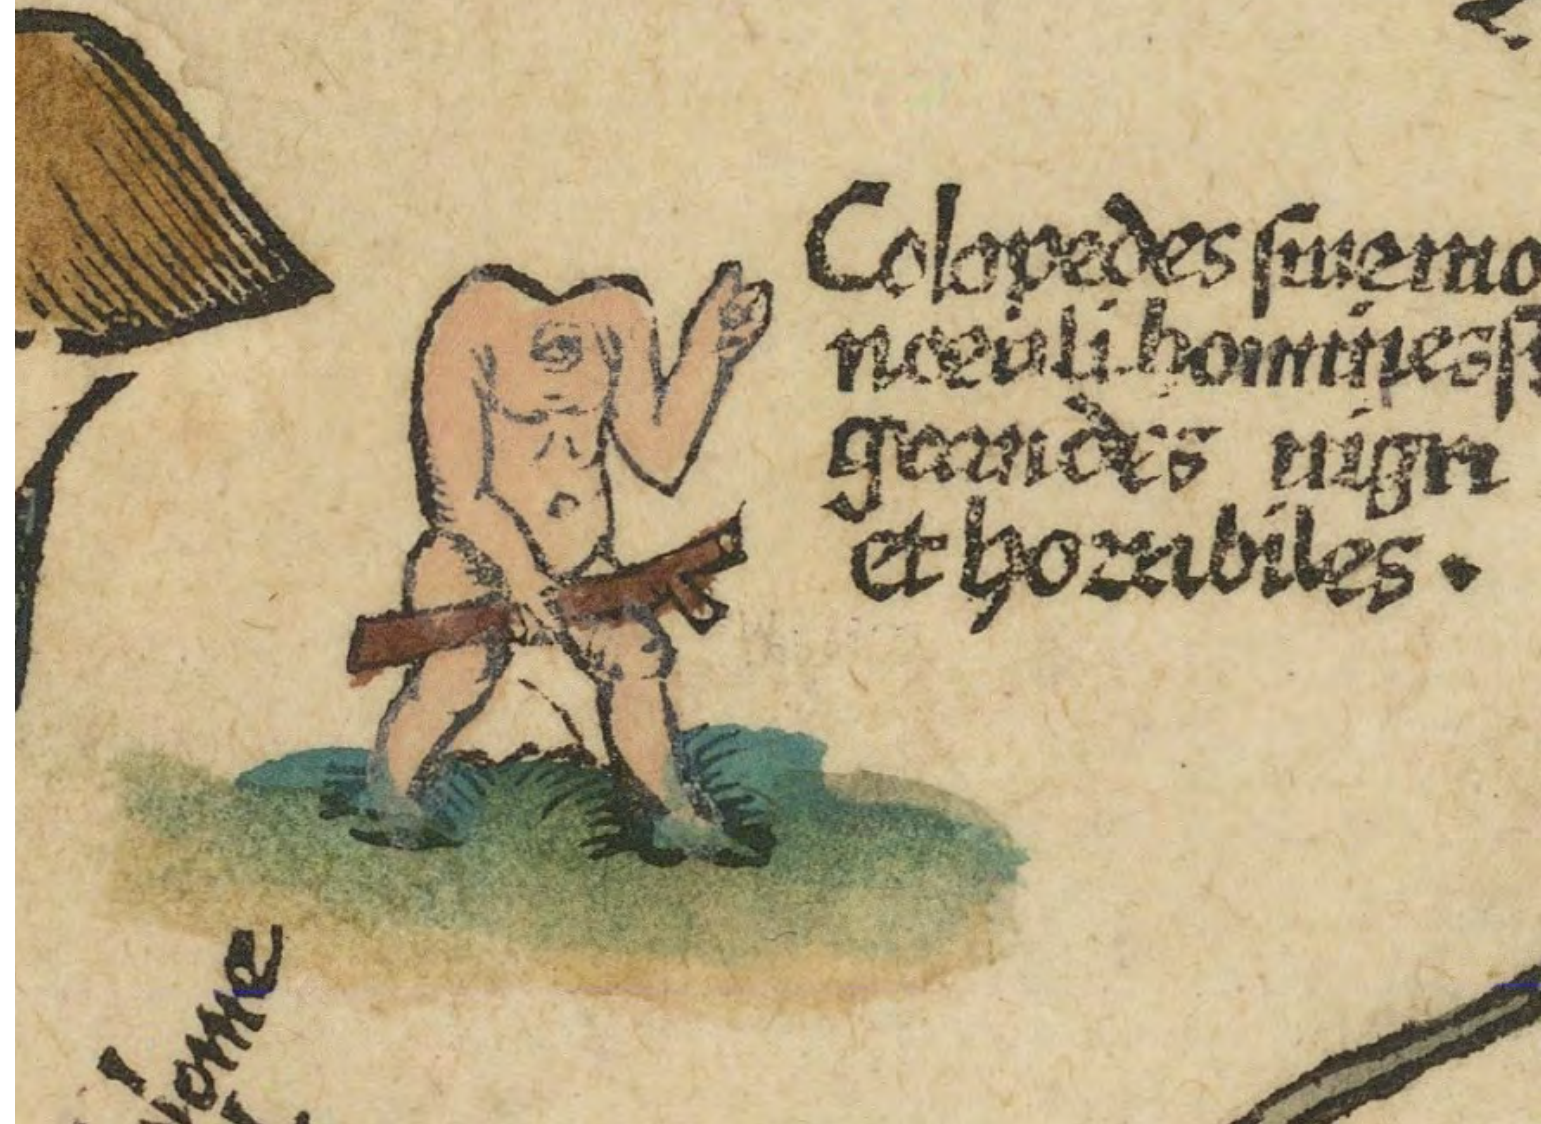 Colopedes siue mo
noculi homines s
grandes nigri
et horribiles.